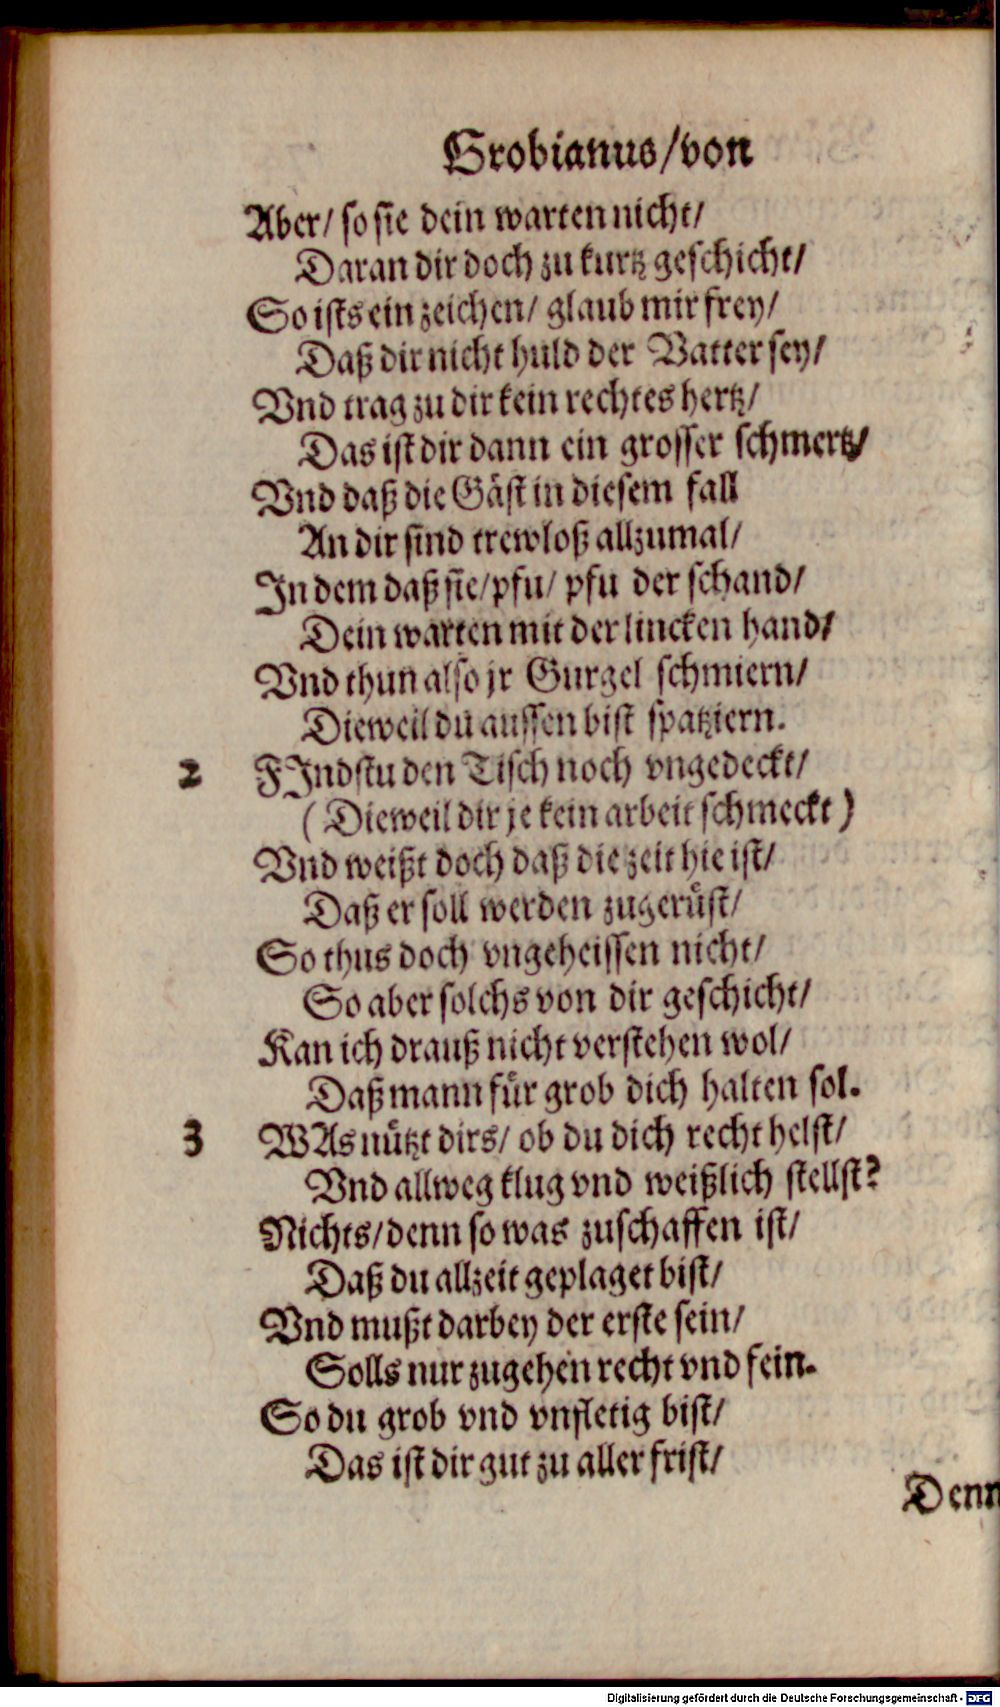 Grobianus/von
Aber/ so sie dein warten nicht/
Daran dir doch zu kurtz geschicht/
So ists ein zeichen/ glaub mir frey/
Daß dir nicht huld der Vatter sey/
Vnd trag zu dir kein rechtes hertz/
Das ist dir dann ein grosser schmertz/
Vnd daß die Gäst in diesem fall
An dir sind trewloß allzumal/
In dem daß sie/pfu/ pfu der schand/
Dein warten mit der lincken hand/
Vnd thun also jr Gurgel schmiern/
Dieweil du aussen bist spatziern.
2 FIndstu den Tisch noch vngedeckt/
(Dieweil dir je kein arbeit schmeckt)
Vnd weißt doch daß die zeit hie ist/
Daß er soll werden zugerüst/
So thus doch vngeheissen nicht/
So aber solchs von dir geschicht/
Kan ich drauß nicht verstehen wol/
Daß mann für grob dich halten sol.
3 WAs nützt dirs/ ob du dich recht helst/
Vnd allweg klug vnd weißlich stellst?
Nichts/denn so was zuschaffen ist/
Daß du allzeit geplaget bist/
Vnd mußt darbey der erste sein/
Solls nur zugehen recht vnd fein.
So du grob vnd vnfletig bist/
Das ist dir gut zu aller frist/
Denn
Digitalisierung gefördert durch die Deutsche Forschungsgemeinschaft - DFG